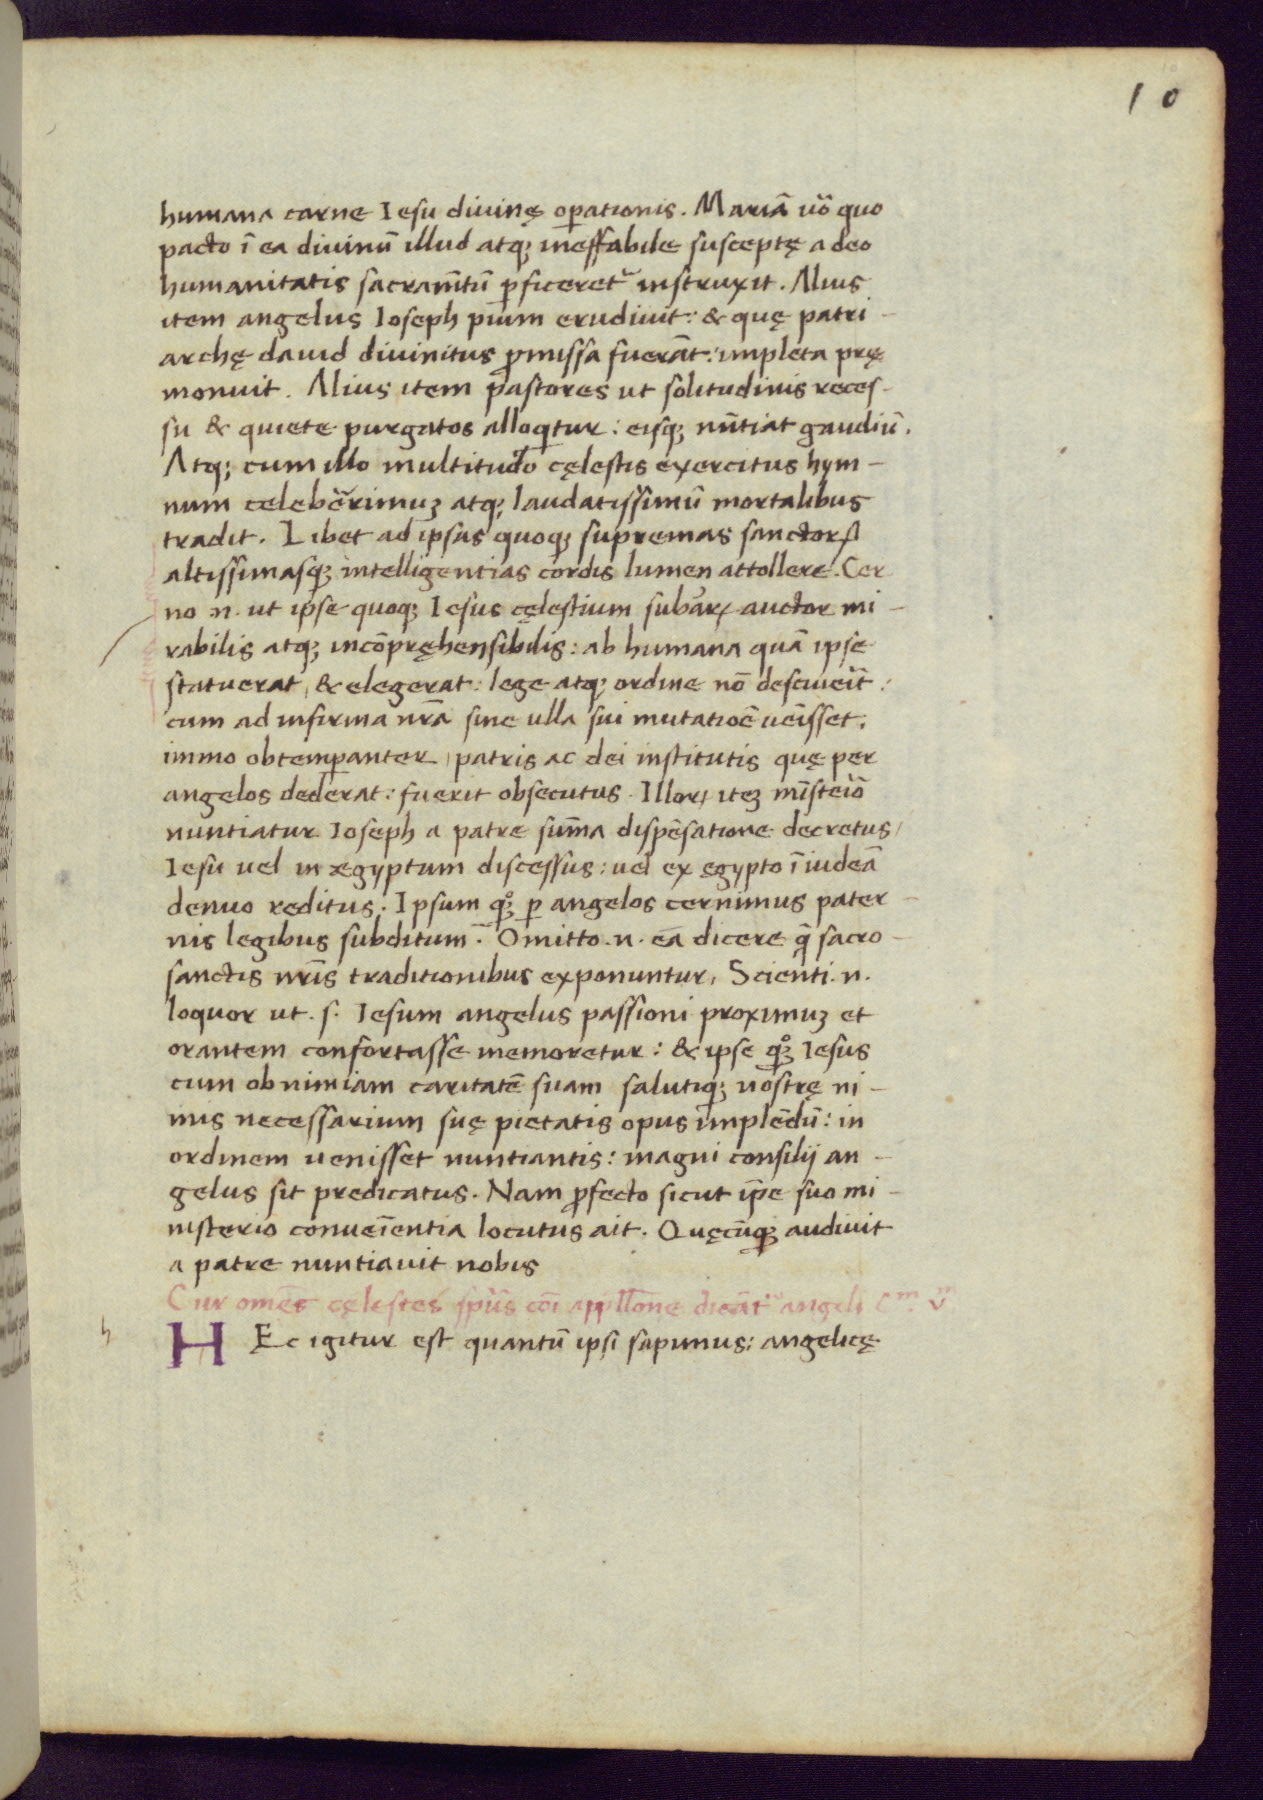 10
humana carne Iesu divinę oꝑationis. Mariā uō quo
pacto ī ea divinū illud atqꝫ ineffabile susceptę a deo
humanitatis sacram̄tū ꝑficeret᷑ instruxit. Alius
item angelus Ioseph pium erudivit: & quę patri-
archę david divinitus ꝓmissa fuerāt: impleta prę
monuit. Alius item pastores ut solitudinis reces-
su & quiete purgatos alloqitur: eisqꝫ nūtiat gaudiū.
Atqꝫ cum illo multitudo cęlestis exercitus hym-
num celeberrimuꝫ atqꝫ laudatissimū mortalibus
tradit. Libet ad ipsas quoqꝫ supremas sanctorꝝ
altissimasqꝫ intelligentias cordis lumen attollere. Cer
no .n. ut ipse quoqꝫ Iesus cęlestium subar̄ꝝ auctor mi-
rabilis atqꝫ incōpręhensibilis: ab humana quā ipse
statuerat, & elegerat: lege atqꝫ ordine nō desciueīt:
cum ad infirma nrā sine ulla sui mutatiōe ueīsset:
immo obtemꝑanter, patris ac dei institutis quę per
angelos dederat: fuerit obsecutus. Illorꝝ iteꝫ mīsteīō
nuntiatur Ioseph a patre sum̄a dispēsatione decretus,
Iesu vel in ægyptum discessus: vel ex ęgypto ī iudeā
denuo reditus. Ipsum qꝫͦ ꝑ angelos cernimus pater-
nis legibus subditum. Omitto .n. ea dicere q̄ sacro-
sanctis nrīs traditionibus exponuntur, Scienti .n.
loquor ut .s. Iesum angelus passioni proximuꝫ et
orantem confortasse memoretur: & ipse qꝫͦ Iesus
cum ob nimiam caritatē suam salutiqꝫ nostrę ni-
mis necessarium suę pietatis opus implēdū: in
ordinem venisset nuntiantis: magni consilij an-
gelus sit predicatus. Nam ꝓfecto sicut ip̄e suo mi-
nisterio conueīentia locutus ait. Quęcūqꝫ audivit
a patre nuntiavit nobis
Cur omēs cęlestes sp̄ūs cōi appll̄one dicāt᷑ angeli Cᵐ. vᵐ
HĘc igitur est quantū ipsi sapimus: angelicę